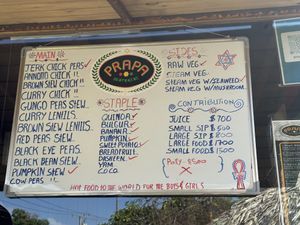 MAIN
JERK CHICK PEAS
ANNOTO CHICK "
BROWN SIEW CHICK "
CURRY CHICK "
GUNGO PEAS SIEW
CURRY LENIILS
BROWN SIEW LENIILS
RED PEAS SIEW
BLACK EYE PEAS
BLACK BEAN SIEW
PUMPKIN SIEW
COW PEAS "
PRAPA
STAPLE
QUINOA
BULGUR
BANANA
PUMPKIN
SWEET POTATO
BREADFRUIT
DASHEEN
YAM
COCO
SIDES
RAW VEG
STEAM VEG
STEAM VEG W/SEAWEED
STEAM VEG W/MUSHROOM
CONTRIBUTION
JUICE $700
SMALL SIP $500
LARGE SIP $800
LARGE FOOD $1700
SMALL FOOD $1500
HOT FOOD TO THE WORLD FOR THE BOYS & GIRLS